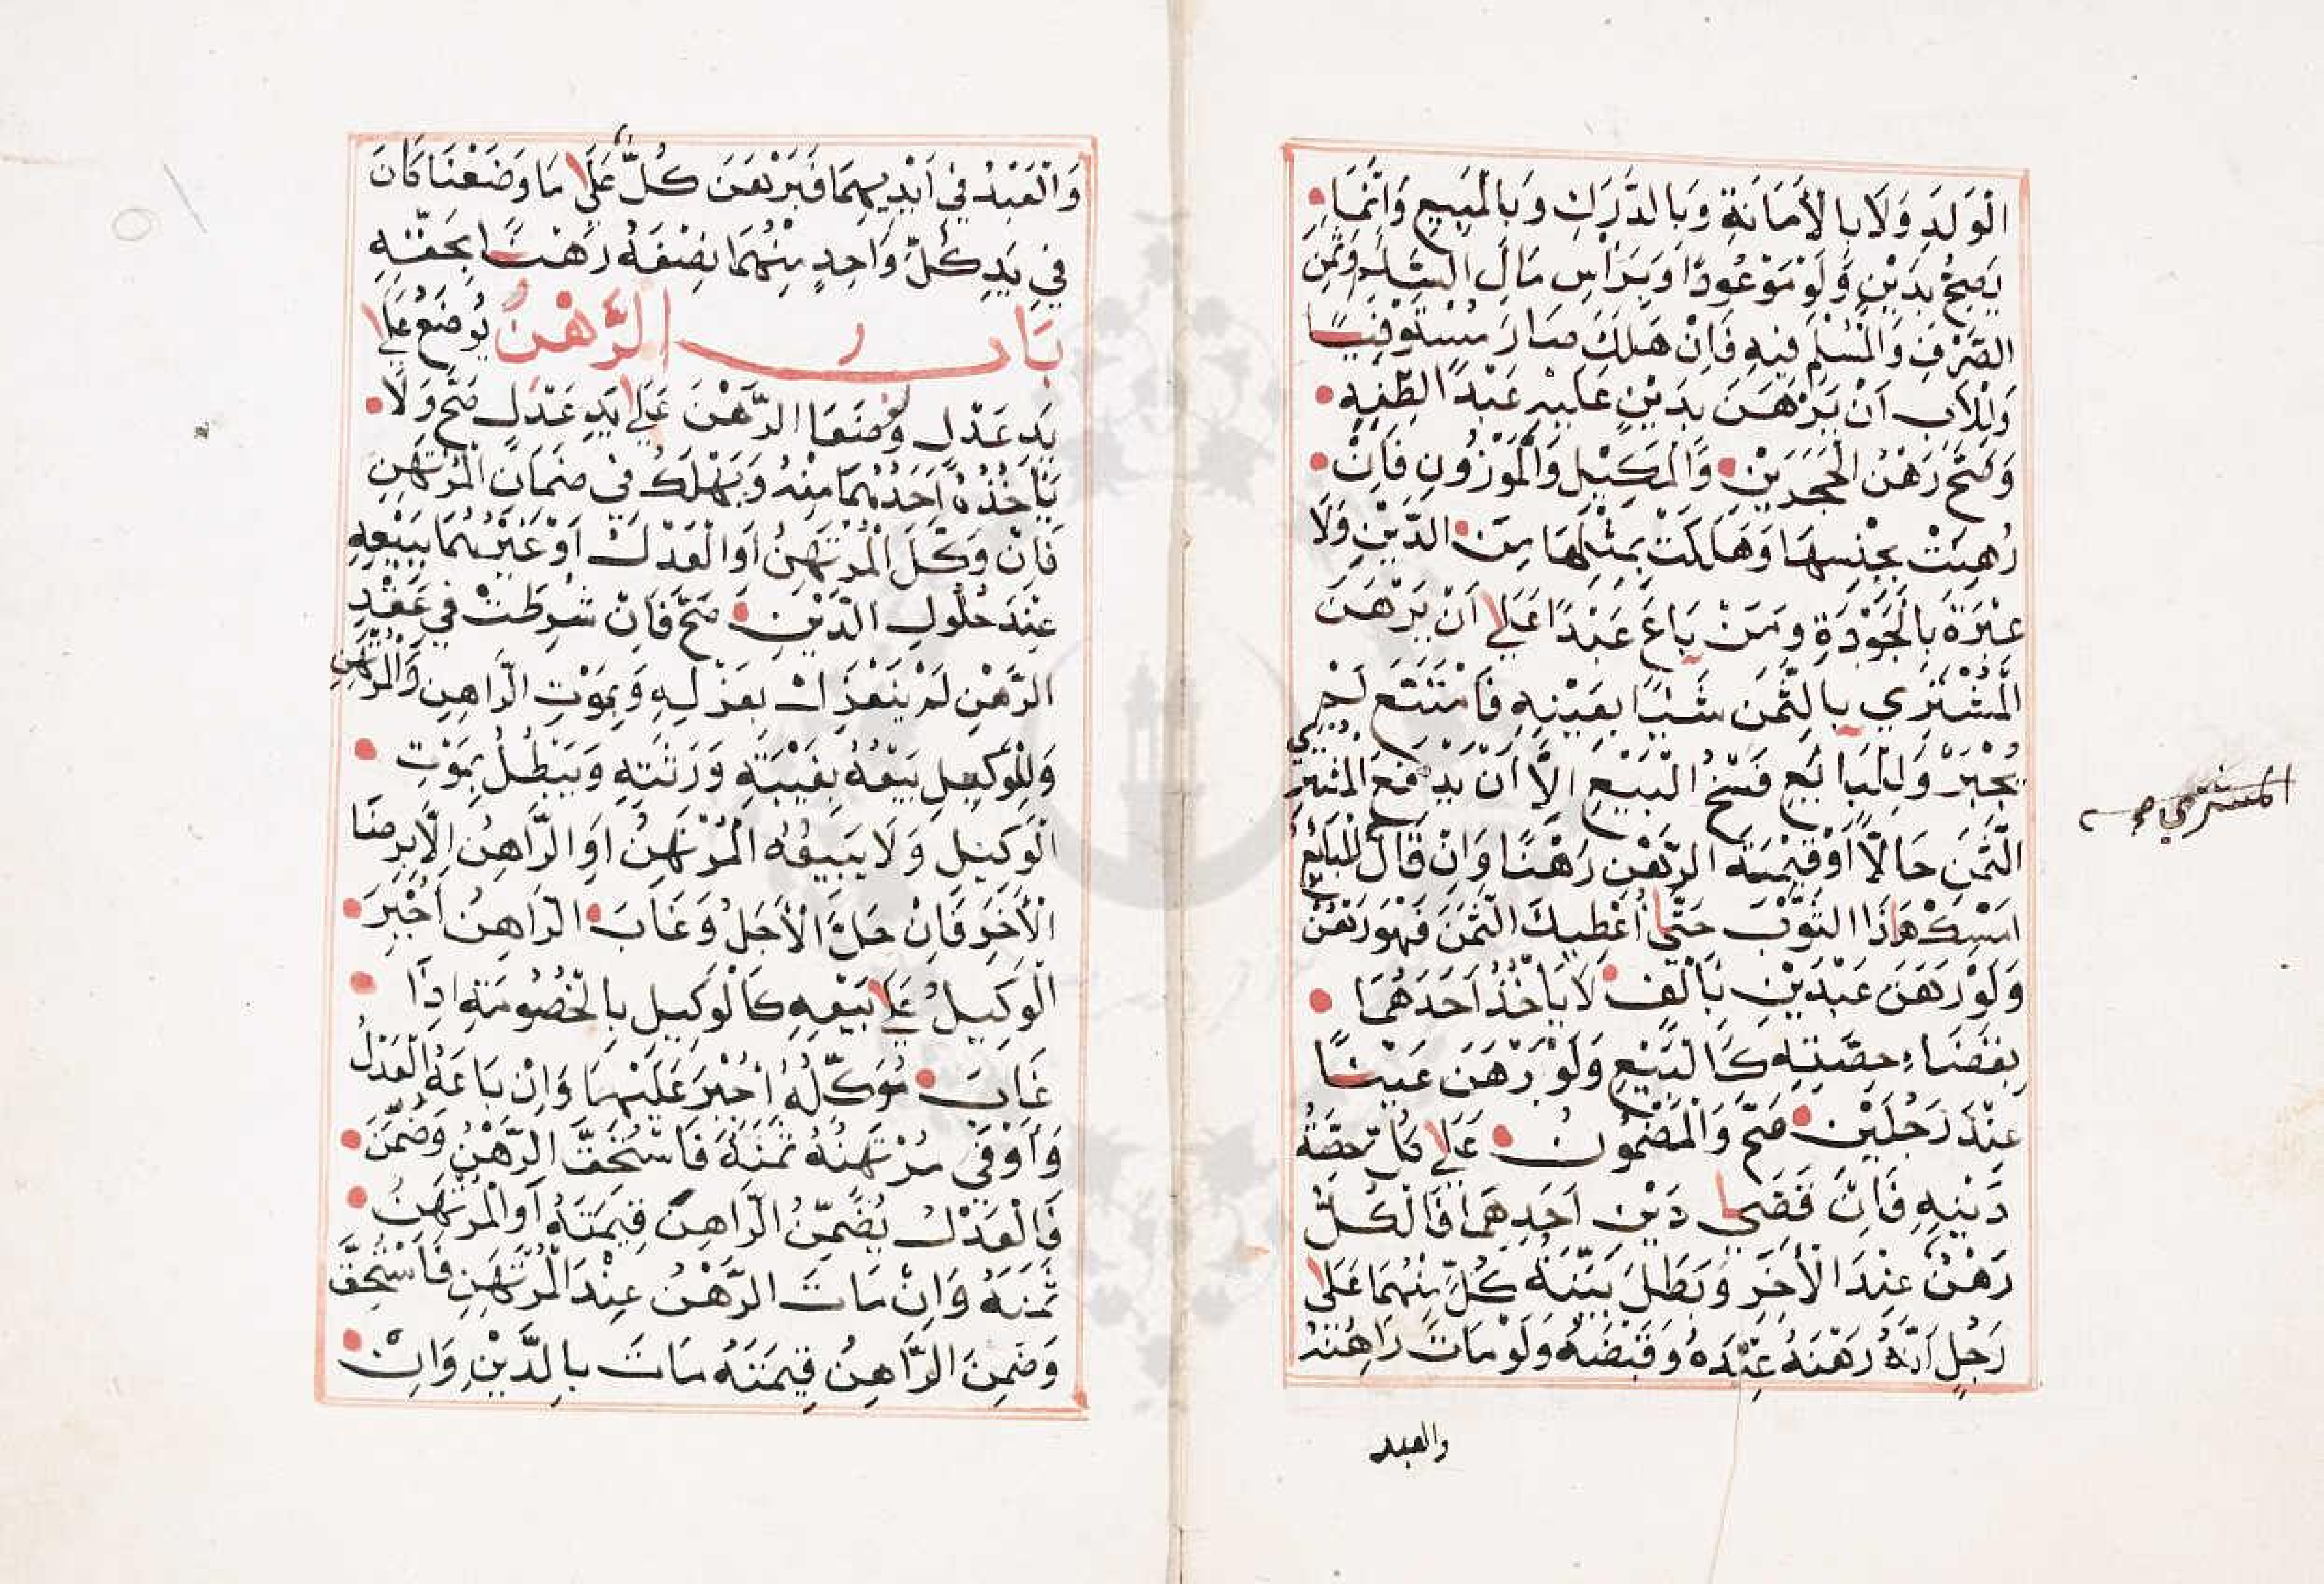 الْوَلَدِ وَلَا بِالْأَمَانَةِ وَبِالدَّرَكِ وَبِالْمَبِيعِ وَإِنَّمَا
يَصِحُّ بِدَيْنٍ وَلَوْ مَوْعُودًا وَبِرَأْسِ مَالِ السَّلَمِ وَثَمَنِ
الصَّرْفِ وَالْمُسْلَمِ فِيهِ فَإِنْ هَلَكَ صَارَ مُسْتَوْفِيًا
وَلِلْأَبِ أَنْ يَرْهَنَ بِدَيْنٍ عَلَيْهِ عَبْدًا لِطِفْلِهِ
وَصَحَّ رَهْنُ الْحَجَرَيْنِ وَالْمَكِيلِ وَالْمَوْزُونِ فَإِنْ
رُهِنَتْ بِجِنْسِهَا وَهَلَكَتْ بِمِثْلِهَا مِنَ الدَّيْنِ وَلَا
عِبْرَةَ بِالْجَوْدَةِ وَمَنْ بَاعَ عَبْدًا عَلَى أَنْ يَرْهَنَ
الْمُشْتَرِي بِالثَّمَنِ شَيْئًا بِعَيْنِهِ فَامْتَنَعَ لَمْ
يُجْبَرْ وَلِلْبَائِعِ فَسْخُ الْبَيْعِ إِلَّا أَنْ يَدْفَعَ الْمُشْتَرِي
المشتري صح
الثَّمَنَ حَالًّا أَوْ قِيمَةَ الرَّهْنِ رَهْنًا وَإِنْ قَالَ لِلْبَائِعِ
امْسِكْ هَذَا الثَّوْبَ حَتَّى أُعْطِيكَ الثَّمَنَ فَهُوَ رَهْنٌ
وَلَوْ رَهَنَ عَبْدَيْنِ بِأَلْفٍ لَا يَأْخُذُ أَحَدَهُمَا
بِقَضَاءِ حِصَّتِهِ كَالْبَيْعِ وَلَوْ رَهَنَ عَيْنًا
عِنْدَ رَجُلَيْنِ صَحَّ وَالْمَضْمُونُ عَلَى كُلٍّ حِصَّةُ
دَيْنِهِ فَإِنْ قَضَى دَيْنَ أَحَدِهِمَا فَالْكُلُّ
رَهْنٌ عِنْدَ الْآخَرِ وَبَطَلَ بَيِّنَةُ كُلٍّ مِنْهُمَا عَلَى
رَجُلٍ أَنَّهُ رَهَنَهُ عِنْدَهُ وَقَبَضَهُ وَلَوْ مَاتَ رَاهِنُهُ
والعبد
وَالْعَبْدُ فِي أَيْدِيهِمَا فَبَرْهَنَ كُلٌّ عَلَى مَا وَصَفْنَا كَانَ
فِي يَدِ كُلِّ وَاحِدٍ مِنْهُمَا نِصْفُهُ رَهْنًا بِحَقِّهِ
بَاب الرَّهْنُ يُوضَعُ عَلَى
يَدِ عَدْلٍ وَضَعَا الرَّهْنَ عَلَى يَدِ عَدْلٍ صَحَّ وَلَا
يَأْخُذُهُ أَحَدُهُمَا مِنْهُ وَيَهْلَكُ فِي ضَمَانِ الْمُرْتَهِنِ
فَإِنْ وَكَّلَ الْمُرْتَهِنُ أَوِ الْعَدْلَ أَوْ غَيْرَهُمَا بِبَيْعِهِ
عِنْدَ حُلُولِ الدَّيْنِ صَحَّ فَإِنْ شُرِطَتْ فِي عَقْدِ
الرَّهْنِ لَمْ يَنْعَزِلْ بِعَزْلِهِ وَبِمَوْتِ الرَّاهِنِ وَالْمُرْتَهِنِ
وَلِلْوَكِيلِ بَيْعُهُ بِغَيْبَةِ وَرَثَتِهِ وَيَبْطُلُ بِمَوْتِ
الْوَكِيلِ وَلَا يَبِيعُهُ الْمُرْتَهِنُ أَوِ الرَّاهِنُ إِلَّا بِرِضَا
الْآخَرِ فَإِنْ حَلَّ الْأَجَلُ وَغَابَ الرَّاهِنُ أُجْبِرَ
الْوَكِيلُ عَلَى بَيْعِهِ كَالْوَكِيلِ بِالْخُصُومَةِ إِذَا
غَابَ مُوَكِّلُهُ أُجْبِرَ عَلَيْهَا وَإِنْ بَاعَهُ الْعَدْلُ
وَأَوْفَى مُرْتَهِنَهُ ثَمَنَهُ فَاسْتُحِقَّ الرَّهْنُ وَضُمِّنَ
فَالْعَدْلُ يُضَمِّنُ الرَّاهِنَ قِيمَتَهُ أَوِ الْمُرْتَهِنَ
ثَمَنَهُ وَإِنْ مَاتَ الرَّهْنُ عِنْدَ الْمُرْتَهِنِ فَاسْتُحِقَّ
وَضَمِنَ الرَّاهِنُ قِيمَتَهُ مَاتَ بِالدَّيْنِ وَإِنْ